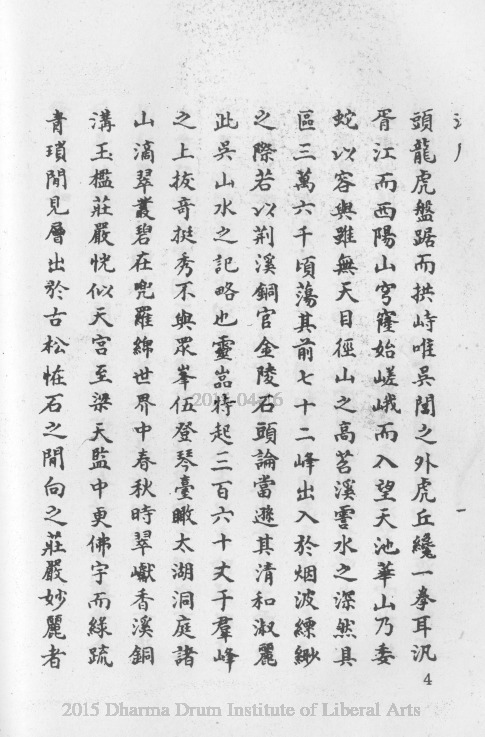 頭龍虎盤踞而拱峙唯吳閶之外虎丘纔一拳耳汎
胥江而西陽山穹窿始嵯峨而入望天池華山乃委
蛇以容與雖無天目徑山之高苕溪霅水之深然具
區三萬六千頃蕩其前七十二峰出入於烟波縹緲
之際若以荆溪銅官金陵石頭論當遜其清和淑麗
此吳山水之記略也靈嵓特起三百六十丈于羣峰
之上拔奇挺秀不與眾峯伍登琴臺瞰太湖洞庭諸
山滴翠叢碧在兜羅綿世界中春秋時翠巘香溪銅
溝玉檻莊嚴恍似天宮至梁天監中更佛宇而綠疏
青瑣閒見層出於古松恠石之閒向之莊嚴妙麗者
一
4
2015 Dharma Drum Institute of Liberal Arts